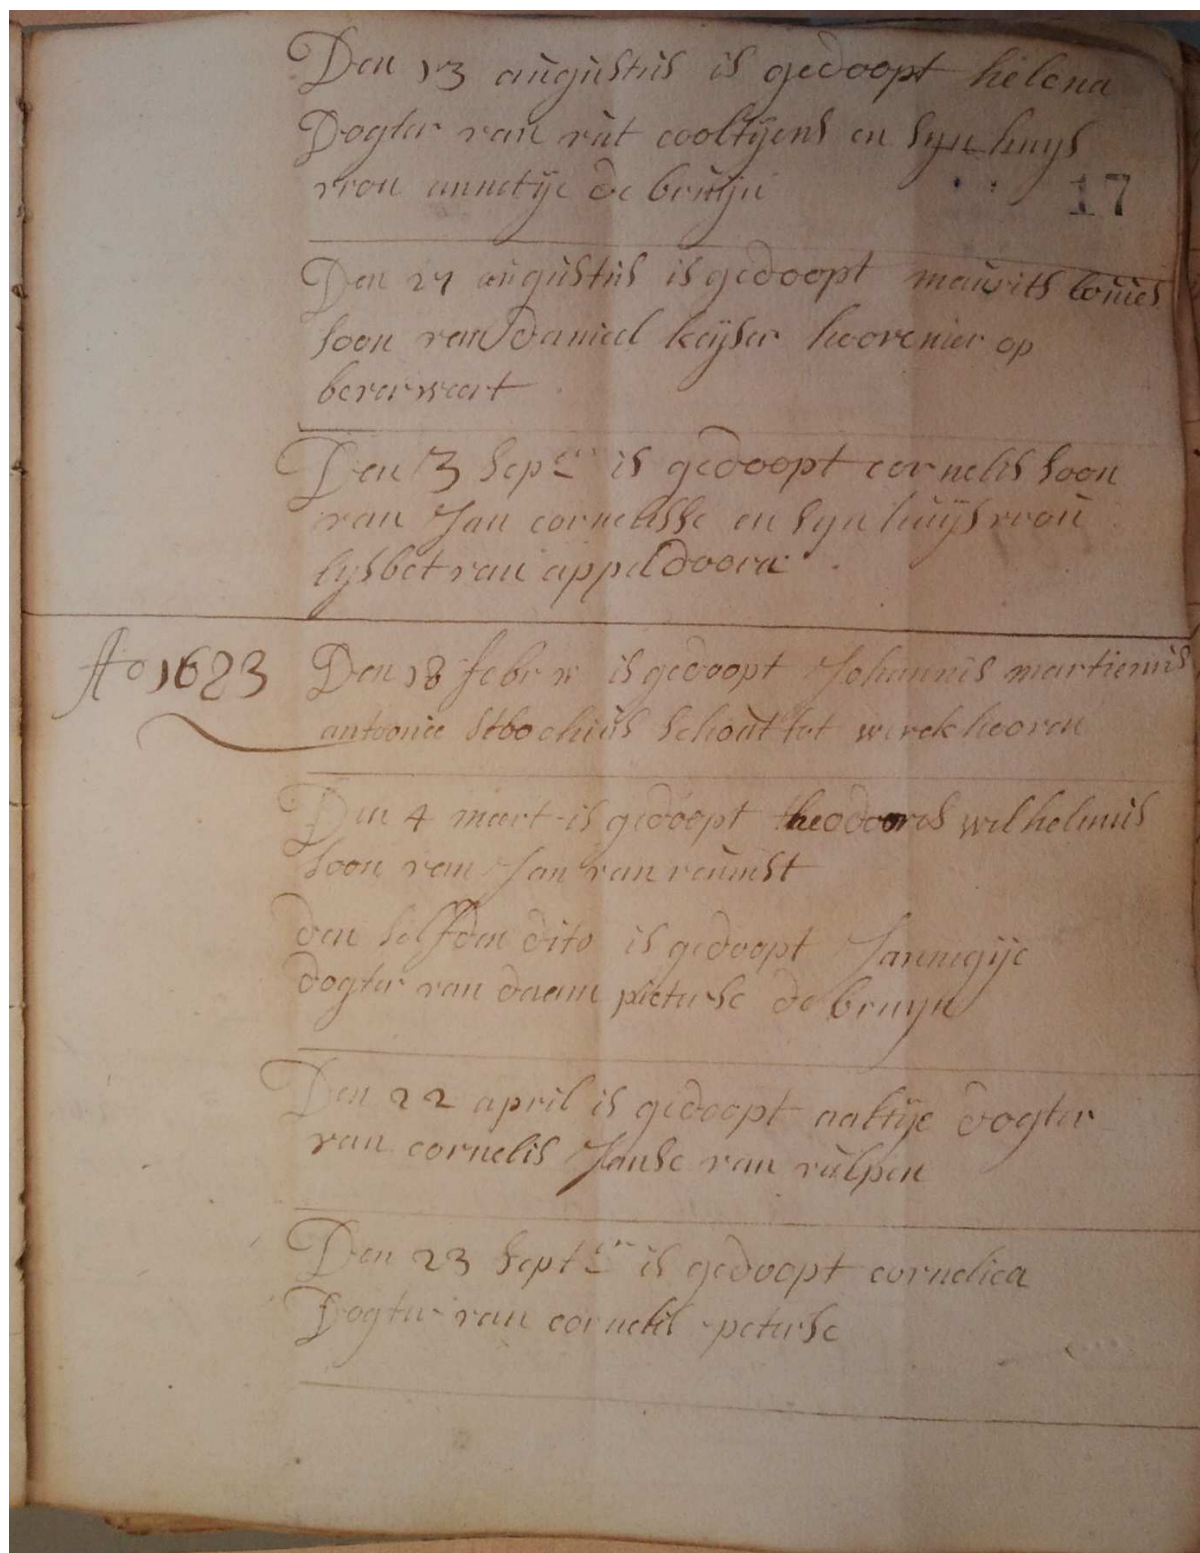 Den 13 augustus is gedoopt helena
Dogter van rut cooltijens en syn huys
vrou annetije de bruijn
17
Den 27 augustus is gedoopt maurits louies
soon van Daniel keijser hoovenier op
beverweert
Den 13 Sepr is gedoopt cornelis soon
van Jan cornelisse en syn huijsvrou
lysbet van appeldoorn
Ao 1683 Den 18 febr is gedoopt Johannis martienus
antonie schout tot werckhooven
Den 4 meert is gedoopt theodoorus wilhelmus
soon van Jan van
den selfden dito is gedoopt Jannigije
dogter van daem pieterse de bruyn
Den 22 april is gedoopt aaltije dogter
van cornelis Janse van vulpen
Den 23 Septr is gedoopt cornelia
Dogter van cornelis peterse